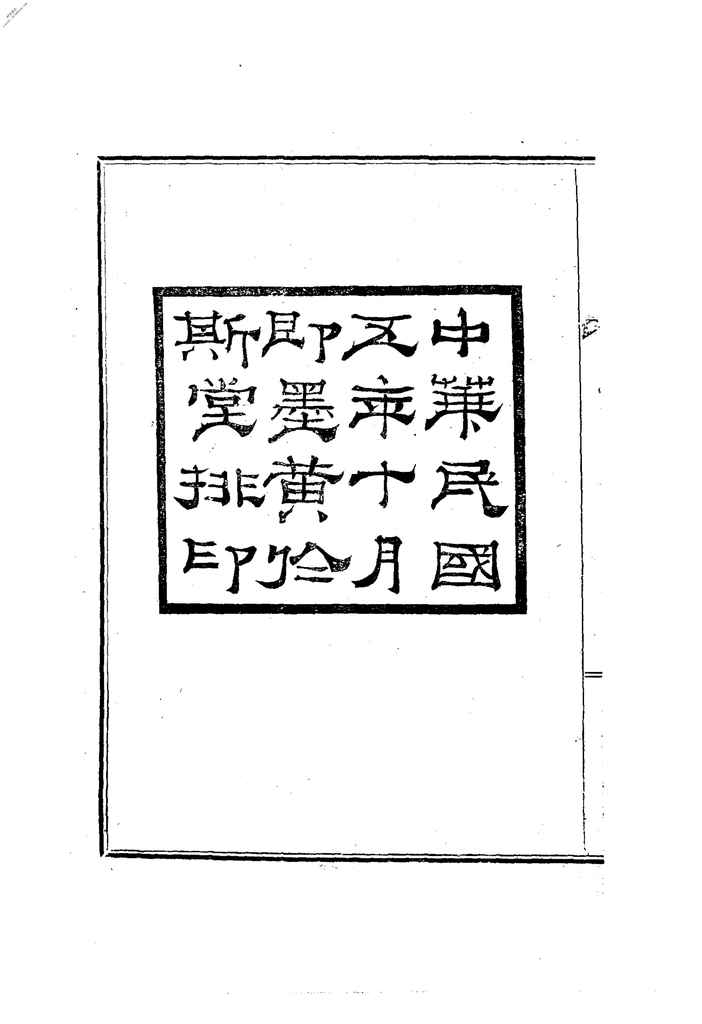 中華民國
五年十月
即墨黃於
斯堂排印